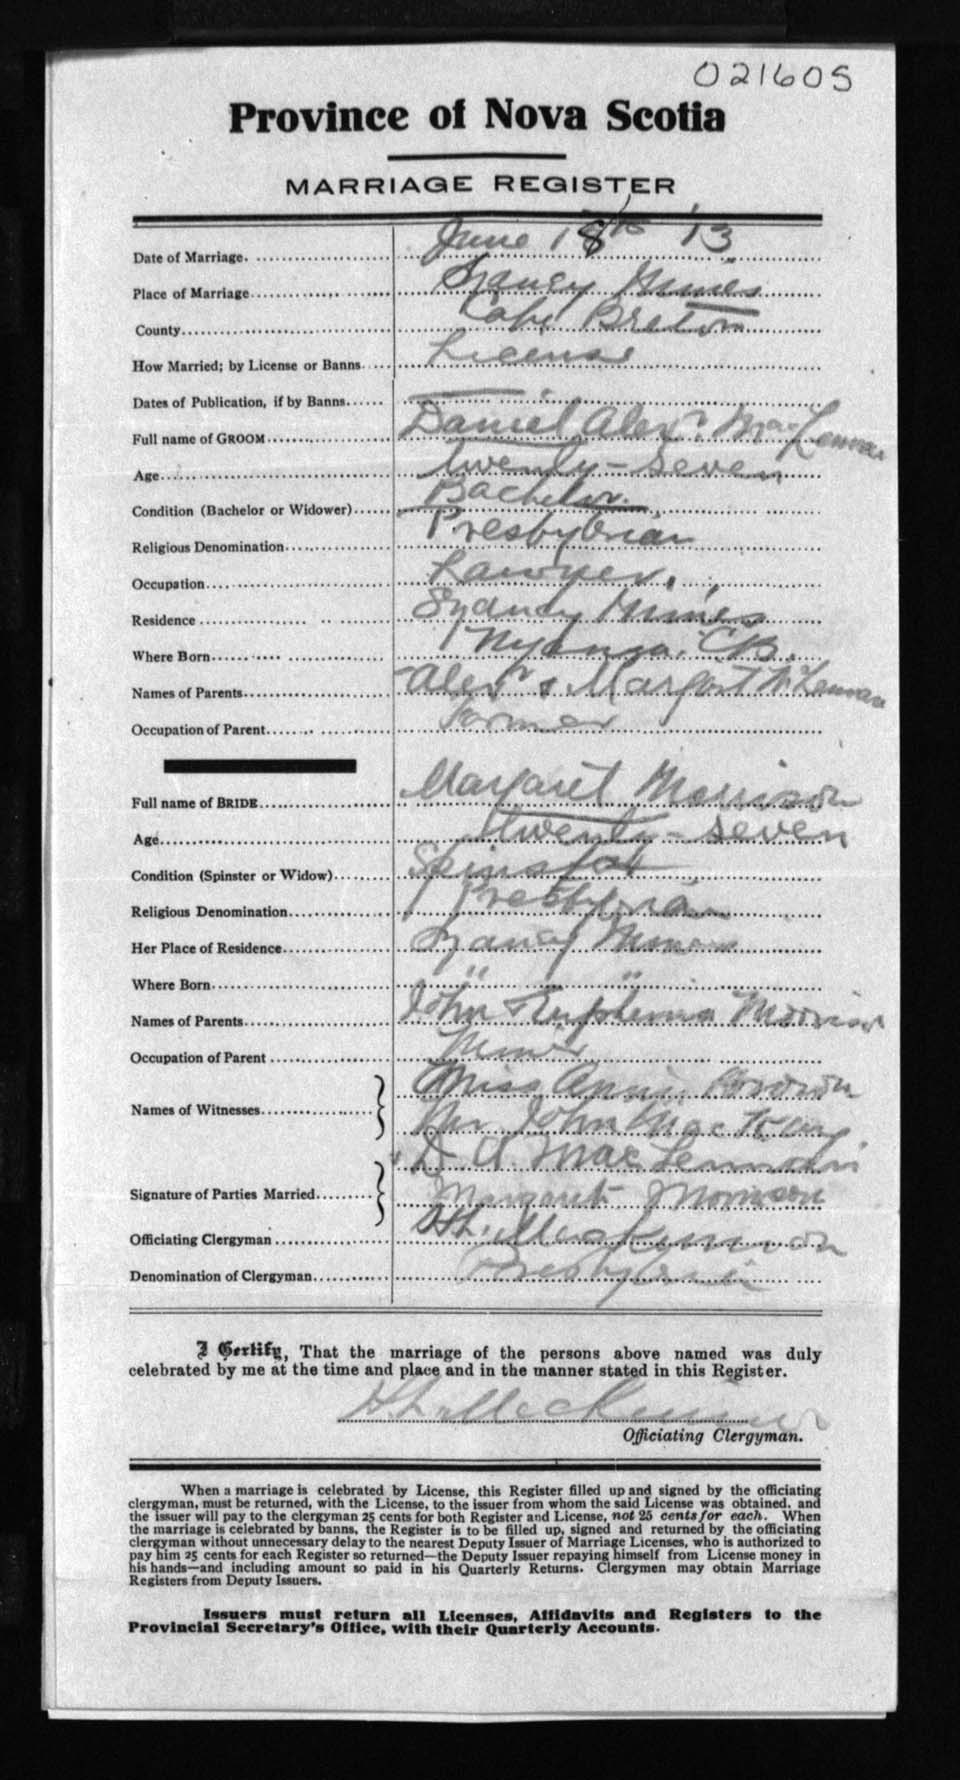 021605
Province of Nova Scotia
MARRIAGE REGISTER
Date of Marriage. June 18th '13
Place of Marriage Sydney Mines
County Cape Breton
How Married; by License or Banns License
Dates of Publication, if by Banns
Full name of GROOM Daniel Alexr. MacLennan
Age twenty-seven
Condition (Bachelor or Widower) Bachelor
Religious Denomination Presbyterian
Occupation Lawyer.
Residence Sydney Mines
Where Born Nyanza. C.B.
Names of Parents Alexr & Margaret McLennan
Occupation of Parent Farmer
Full name of BRIDE Margaret Morrison
Age twenty-seven
Condition (Spinster or Widow) Spinster
Religious Denomination Presbyterian
Her Place of Residence Sydney Mines
Where Born " "
Names of Parents John & Euphemia Morrison
Occupation of Parent Miner
Names of Witnesses Miss Annie
Mr John Mac
Signature of Parties Married D. A. MacLennan
Margaret Morrison
Officiating Clergyman
Denomination of Clergyman Presbyterian
I Certify, That the marriage of the persons above named was duly
celebrated by me at the time and place and in the manner stated in this Register.
Officiating Clergyman.
When a marriage is celebrated by License, this Register filled up and signed by the officiating
clergyman, must be returned, with the License, to the issuer from whom the said License was obtained, and
the issuer will pay to the clergyman 25 cents for both Register and License, not 25 cents for each. When
the marriage is celebrated by banns, the Register is to be filled up, signed and returned by the officiating
clergyman without unnecessary delay to the nearest Deputy Issuer of Marriage Licenses, who is authorized to
pay him 25 cents for each Register so returned—the Deputy Issuer repaying himself from License money in
his hands—and including amount so paid in his Quarterly Returns. Clergymen may obtain Marriage
Registers from Deputy Issuers.
Issuers must return all Licenses, Affidavits and Registers to the
Provincial Secretary's Office, with their Quarterly Accounts.